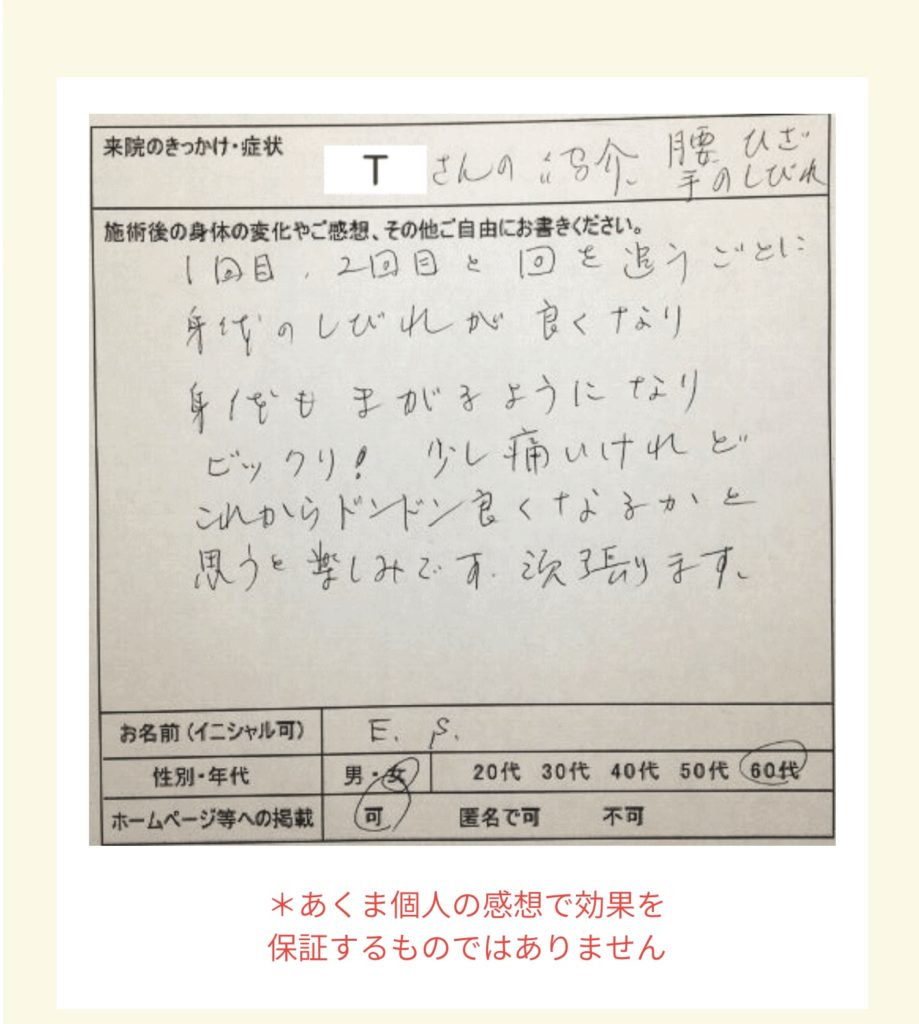 来院のきっかけ・症状
Tさんの紹介 腰 ひざ
手のしびれ
施術後の身体の変化やご感想、その他ご自由にお書きください。
1回目、2回目と回を追うごとに
身体のしびれが良くなり
身体もまがるようになり
ビックリ! 少し痛いけれど
これからドンドン良くなるかと
思うと楽しみです。頑張ります。
お名前(イニシャル可) E. S.
性別・年代 男・女 20代 30代 40代 50代 60代
ホームページ等への掲載 可 匿名で可 不可
＊あくま個人の感想で効果を
保証するものではありません